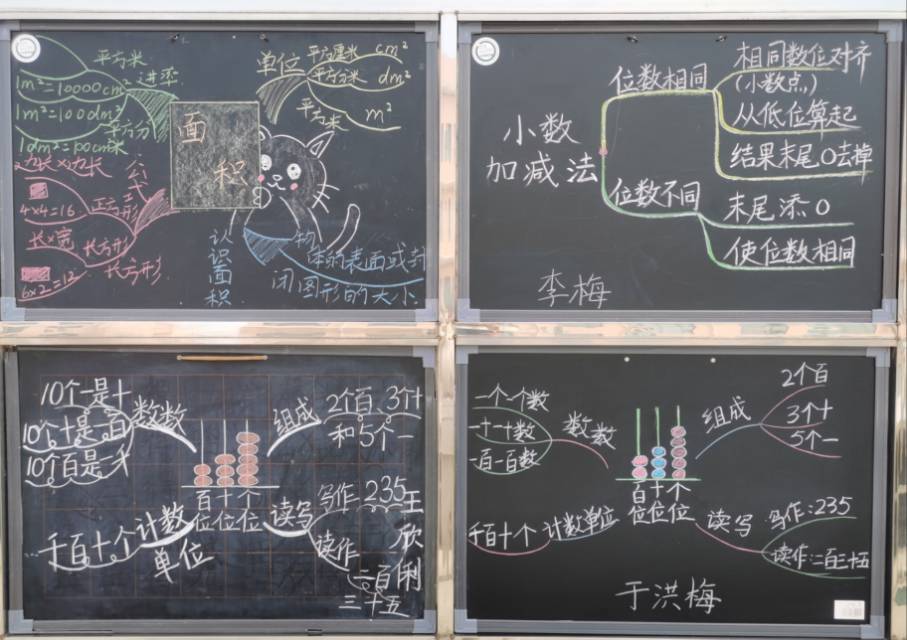 平方米
进率
1m²=10000cm²
1m²=100dm²
平方分米
1dm²=100cm²
单位
平方厘米 cm²
平方分米 dm²
平方米 m²
面积
公式
边长×边长
正方形
4×4=16
长×宽
长方形
长方形
6×2=12
认识面积
物体的表面或封
闭图形的大小
小数
加减法
位数相同
相同数位对齐
(小数点)
从低位算起
结果末尾0去掉
位数不同
末尾添0
使位数相同
李梅
10个一是十
10个十是一百
10个百是一千
数数
组成
2个百、3个十
和5个一
百十个
位位位
…千百十个
计数
单位
读写
写作 235
读作
二百
三十五
王欣俐
一个一个数
一十一十数
一百一百数
数数
组成
2个百
3个十
5个一
百十个
位位位
千百十个
计数单位
读写
写作:235
读作:二百三十五
于洪梅